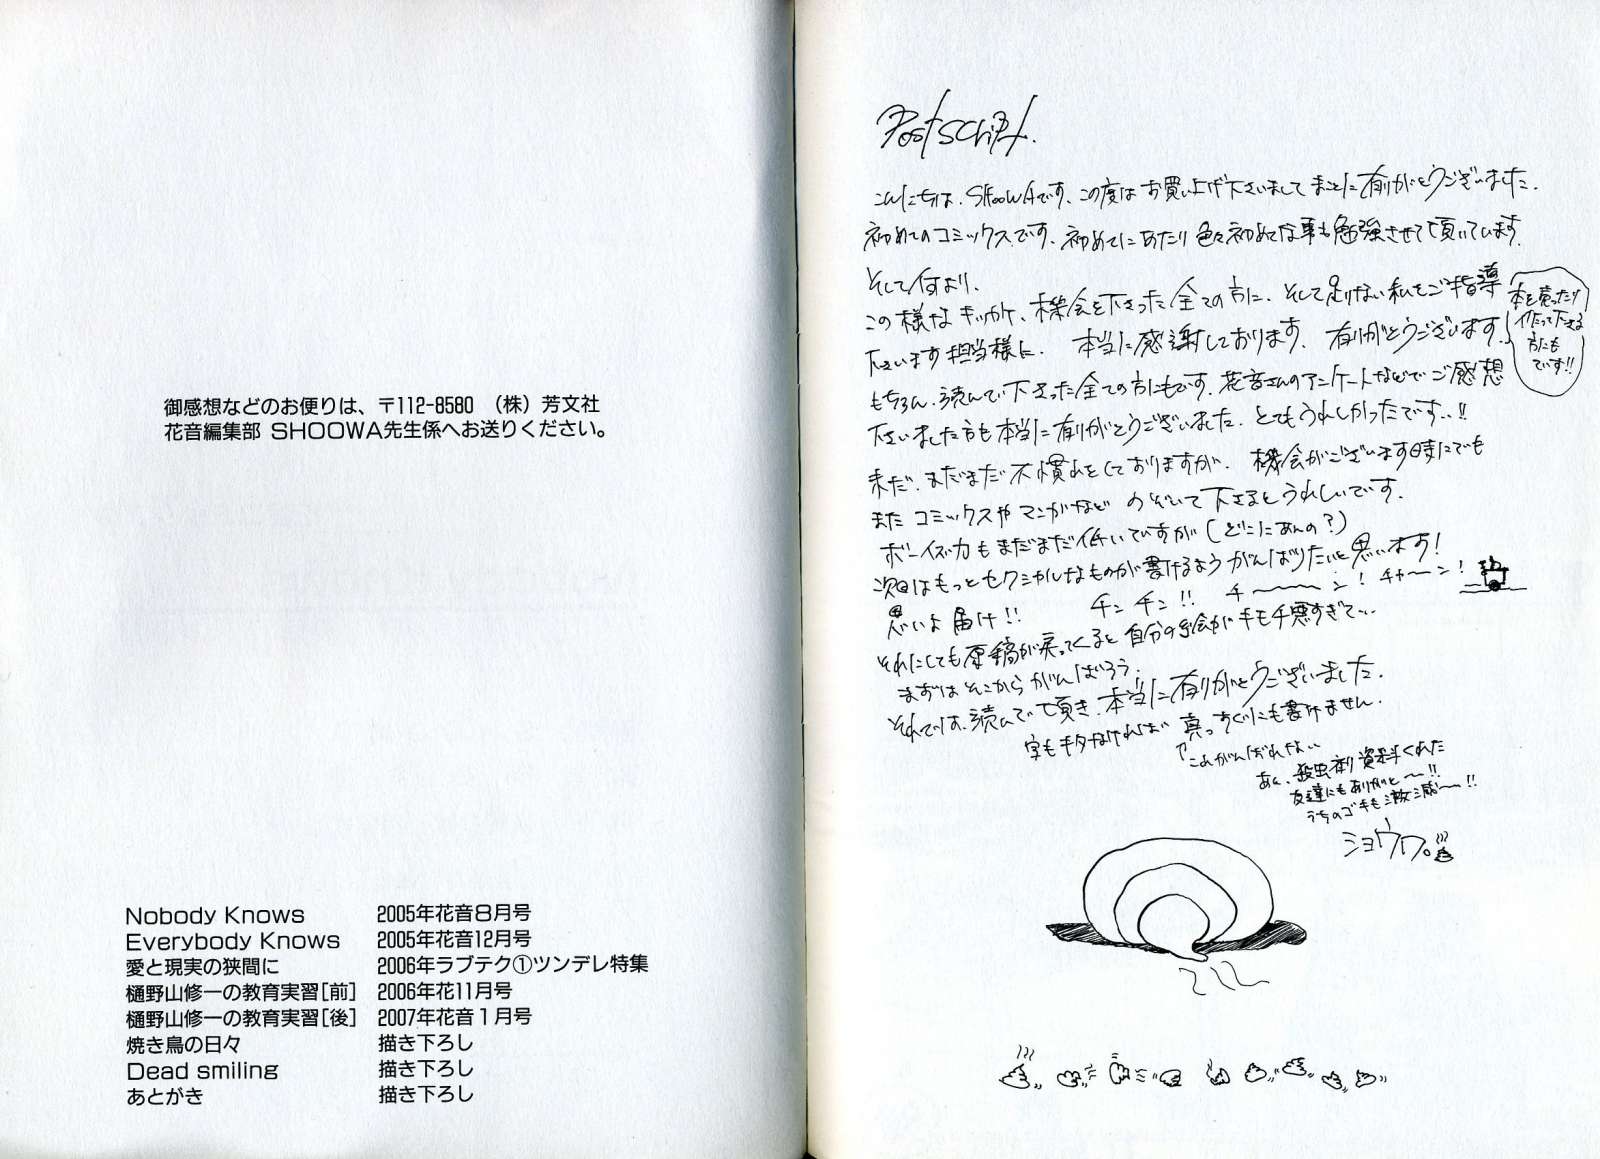 御感想などのお便りは、〒112-8580 （株）芳文社
花音編集部 SHOOWA先生係へお送りください。
Nobody Knows 2005年花音8月号
Everybody Knows 2005年花音12月号
愛と現実の狭間に 2006年ラブテク①ツンデレ特集
樋野山修一の教育実習[前] 2006年花11月号
樋野山修一の教育実習[後] 2007年花音1月号
焼き鳥の日々 描き下ろし
Dead smiling 描き下ろし
あとがき 描き下ろし
Postscript.
こんにちは、SHOOWAです、この度はお買い上げ下さいましてまことに有りがとうございました.
初めてのコミックスです、初めてにあたり色々初めてな事も勉強させて頂いています.
そして何より、
この様なキッカケ、機会を下さった全ての方に、そして足りない私をご指導
下さいます担当様に、本当に感謝しております、有りがとうございます.
本を売ったり
作って下さる
方にも
です!!
もちろん、読んで下さった全ての方にもです、花音さんのアンケートなどでご感想
下さいました方も本当に有りがとうございました、とてもうれしかったです..!!
未だ、まだまだ不慣れをしておりますが、機会がございます時にでも
またコミックスやマンガなどのぞいて下さるとうれしいです.
ボーイズ力もまだまだ低いですが(どこにあんの？)
次回はもっとセクシャルなものが書けるようがんばりたいと思います!
思いよ届け!! チンチン!! チ〜〜〜ン! チャ〜ン!
それにしても原稿が戻ってくると自分の絵が下手すぎて...
まずはそこからがんばろう.
それでは、読んで頂き、本当に有りがとうございました.
字もキタなければ真っすぐにも書けません.
これがんばれない..
あと、殺虫剤資料くれた
友達にもありがと〜!!
うちのゴキも激減〜!!
ショウワ。